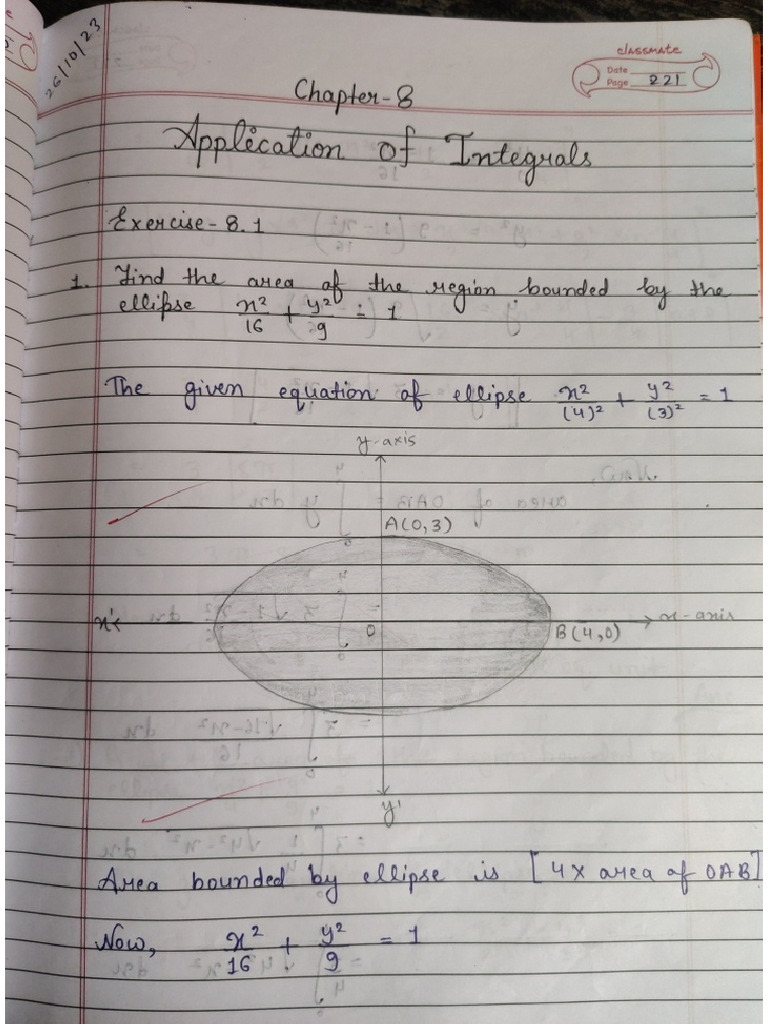 26/10/23
classmate
Date
Page 221
Chapter-8
Application of Integrals
Exercise-8.1
1. Find the area of the region bounded by the
ellipse x²/16 + y²/9 = 1
The given equation of ellipse x²/(4)² + y²/(3)² = 1
y-axis
A(0,3)
x' O B(4,0) x-axis
y'
Area bounded by ellipse is [4x area of OAB]
Now, x²/16 + y²/9 = 1